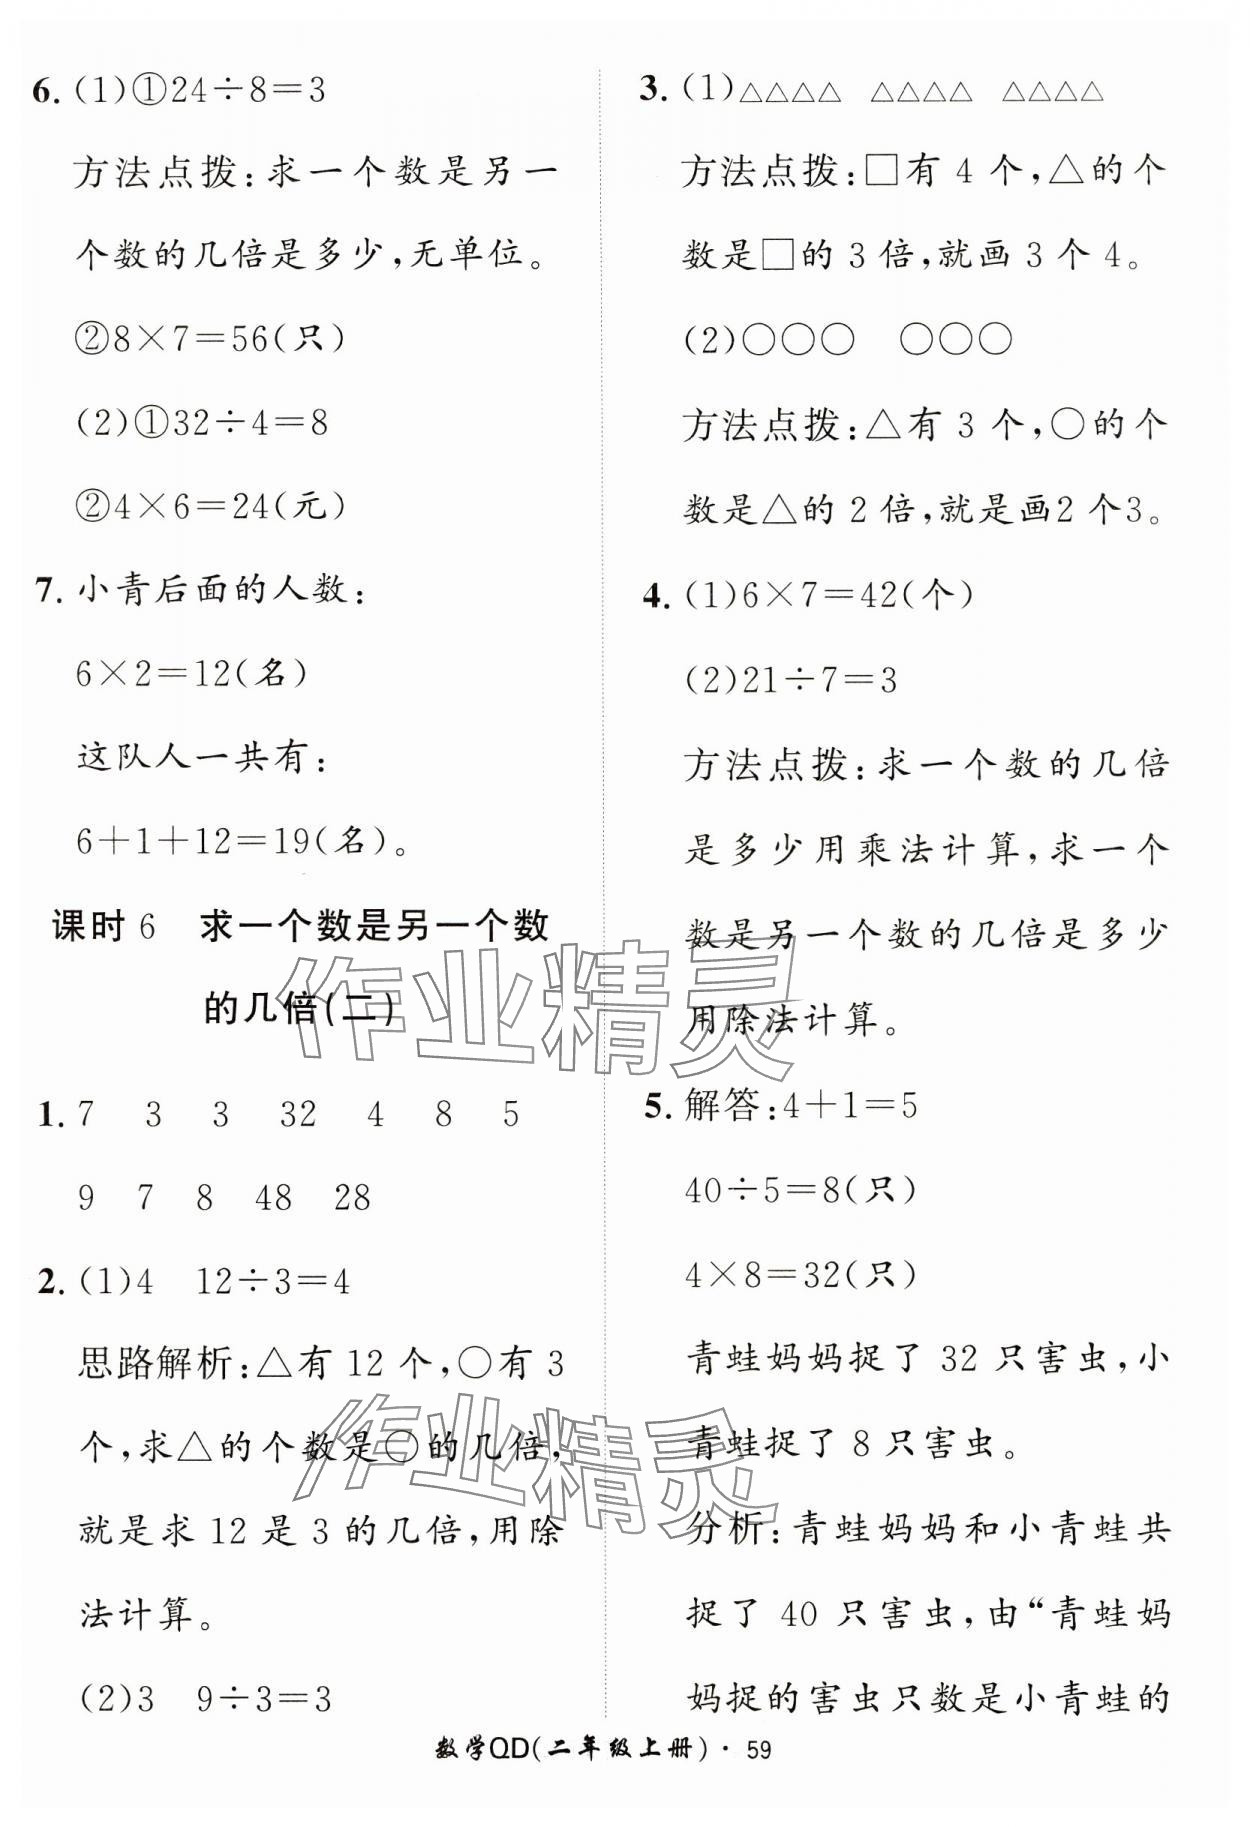 6. (1)①24÷8=3
方法点拨:求一个数是另一
个数的几倍是多少,无单位。
②8×7=56(只)
(2)①32÷4=8
②4×6=24(元)
7. 小青后面的人数:
6×2=12(名)
这队人一共有:
6+1+12=19(名)。
课时6 求一个数是另一个数
的几倍(二)
1. 7 3 3 32 4 8 5
9 7 8 48 28
2. (1)4 12÷3=4
思路解析:△有 12 个,○有 3
个,求△的个数是○的几倍,
就是求 12 是 3 的几倍,用除
法计算。
(2)3 9÷3=3
3. (1)△△△△ △△△△ △△△△
方法点拨:□有 4 个,△的个
数是□的 3 倍,就画 3 个 4。
(2)○○○ ○○○
方法点拨:△有 3 个,○的个
数是△的 2 倍,就是画2 个3。
4. (1)6×7=42(个)
(2)21÷7=3
方法点拨:求一个数的几倍
是多少用乘法计算,求一个
数是另一个数的几倍是多少
用除法计算。
5. 解答:4+1=5
40÷5=8(只)
4×8=32(只)
青蛙妈妈捉了 32 只害虫,小
青蛙捉了 8 只害虫。
分析:青蛙妈妈和小青蛙共
捉了 40 只害虫,由“青蛙妈
妈捉的害虫只数是小青蛙的
数学QD(二年级上册)·59
作业精灵
作业精灵